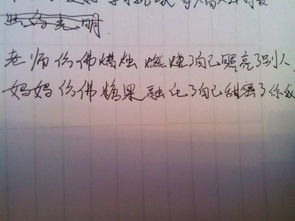 光明.
老师仿佛蜡烛 燃烧了自己照亮了别人
妈妈仿佛糖果 融化了自己甜蜜了你我